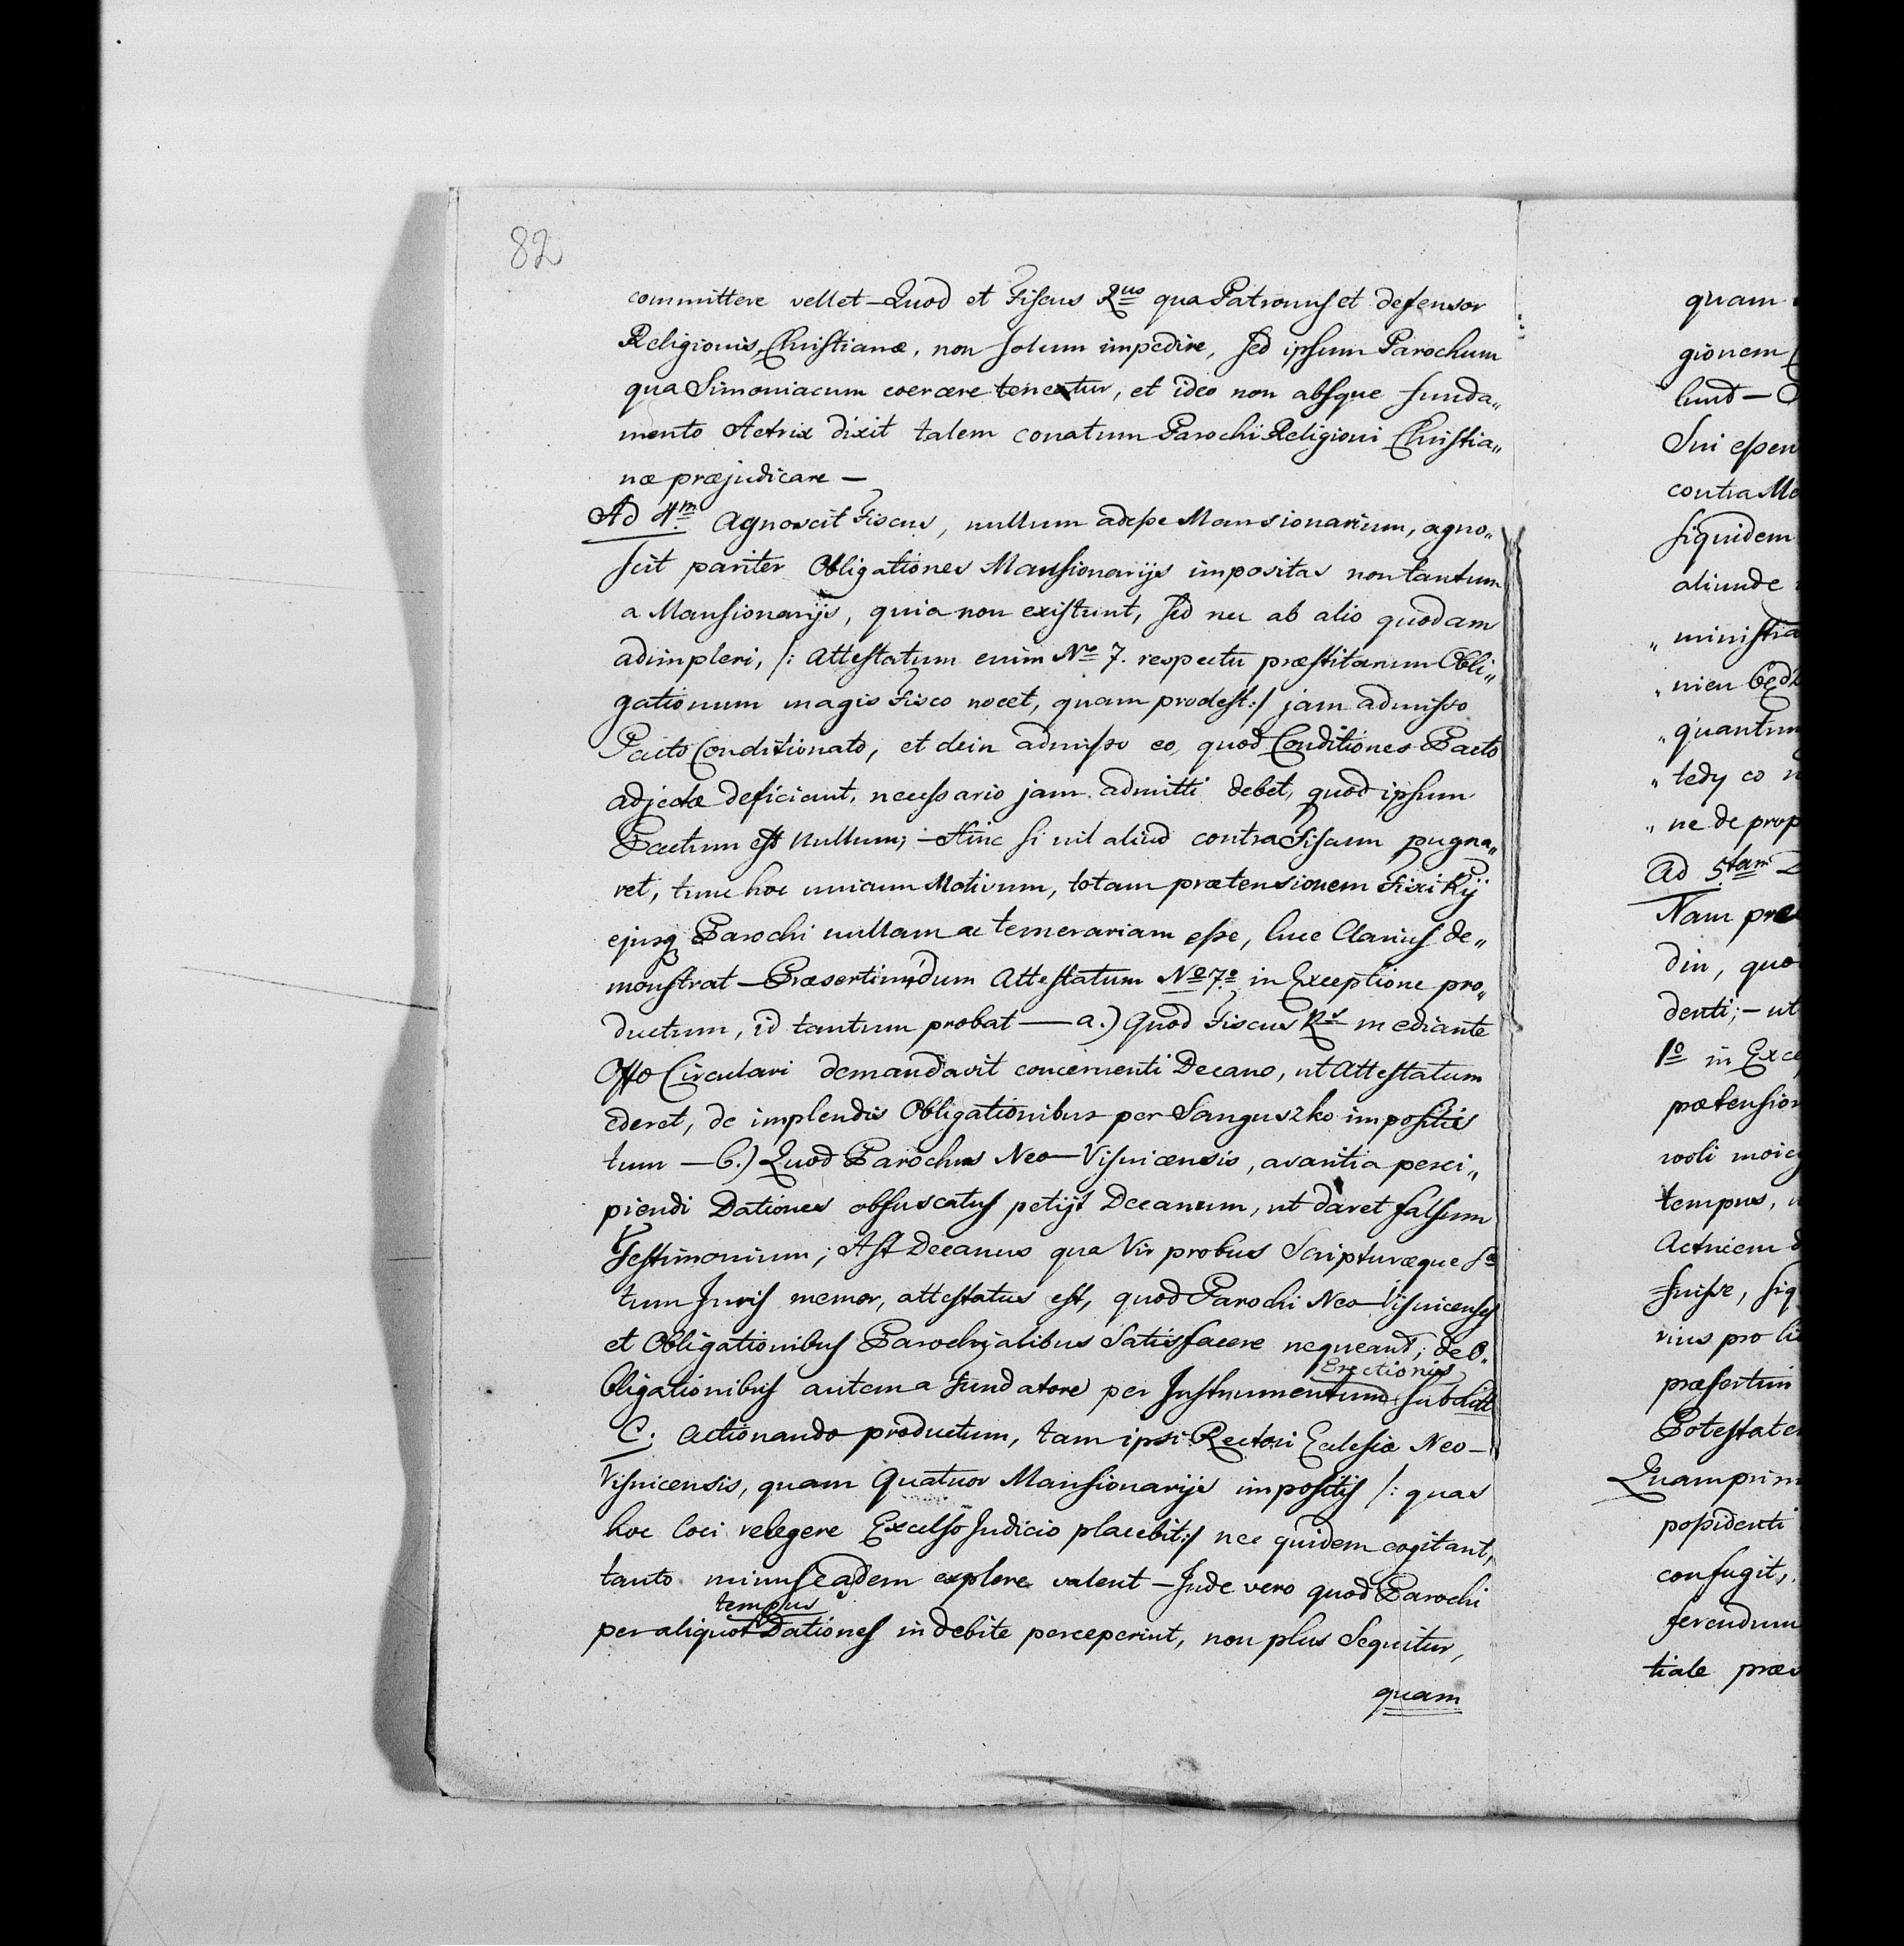 82
committere vellet – Quod et Fiscus Rus qua Patronus et defensor
Religionis Christianæ, non solum impedire, sed ipsum Parochum
qua Simoniacum coercere tenetur, et ideo non absque funda„
mento Actrix dixit talem conatum Parochi Religioni Christia„
næ præjudicare –
Ad 4m Agnoscit Fiscus, nullum adesse Mansionarium, agno„
scit pariter Obligationes Mansionarijs impositas non tantum
a Mansionarijs, quia non existunt, sed nec ab alio quodam
adimpleri, /: Attestatum enim No 7. respectu præstitarum Obli„
gationum magis Fisco nocet, quam prodest :/ jam admisso
Pacto Conditionato, et dein admisso eo, quod Conditiones Pacto
adjectæ deficiant, necessario jam admitti debet, quod ipsum
Pactum est nullum; – Hinc si nil aliud contra Fiscum pugna„
ret, tunc hoc unicum Motivum, totam prætensionem Fisci Rij
ejusq Parochi nullam ac temerariam esse, luce Clarius de„
monstrat – Præsertim, dum Attestatum No 7o in Exceptione pro„
ductum, id tantum probat — a.) Quod Fiscus Rs mediante
Offo Circulari demandavit concernenti Decano, ut Attestatum
ederet, de implendis Obligationibus per Sanguszko impositis
tum – b.) Quod Parochus Neo–Visnicensis, avaritia perci„
piendi Dationes obfuscatus petijt Decanum, ut daret falsum
Testimonium; Ast Decanus qua Vir probus Scripturæque
tum Juris memor, attestatus est, quod Parochi Neo–Visnicenses
et Obligationibus Parochialibus Satisfacere nequeant; de O„
Erectionis
bligationibus autem a Fundatore per Instrumentum sub Litt
C; actionando productum, tam ipsi Rectori Ecclesiæ Neo–
Visnicensis, quam Quatuor Mansionarijs impositis /: quas
hoc loci relegere Excelso Judicio placebit :/ nec quidem cogitant,
tanto minus eadem explere valent – Inde vero quod Parochi
tempus
per aliquot Dationes indebite perceperint, non plus Sequitur,
quam
quam
gionem
lund –
Sui essen
contra Ma
siquidem
aliunde
„ ministra
„ nieu będź
„ quantum
„ tedy co n
„ ne de prop
Ad 5tam
Nam præ
din, quo
denti; – ut
1o in Exce
prætension
woli moicy
tempus,
Actricem d
fuisse, siq
rius pro li
præsertim
Potestatem
Quamprim
possidenti
confugit,
ferendum
tiale præs